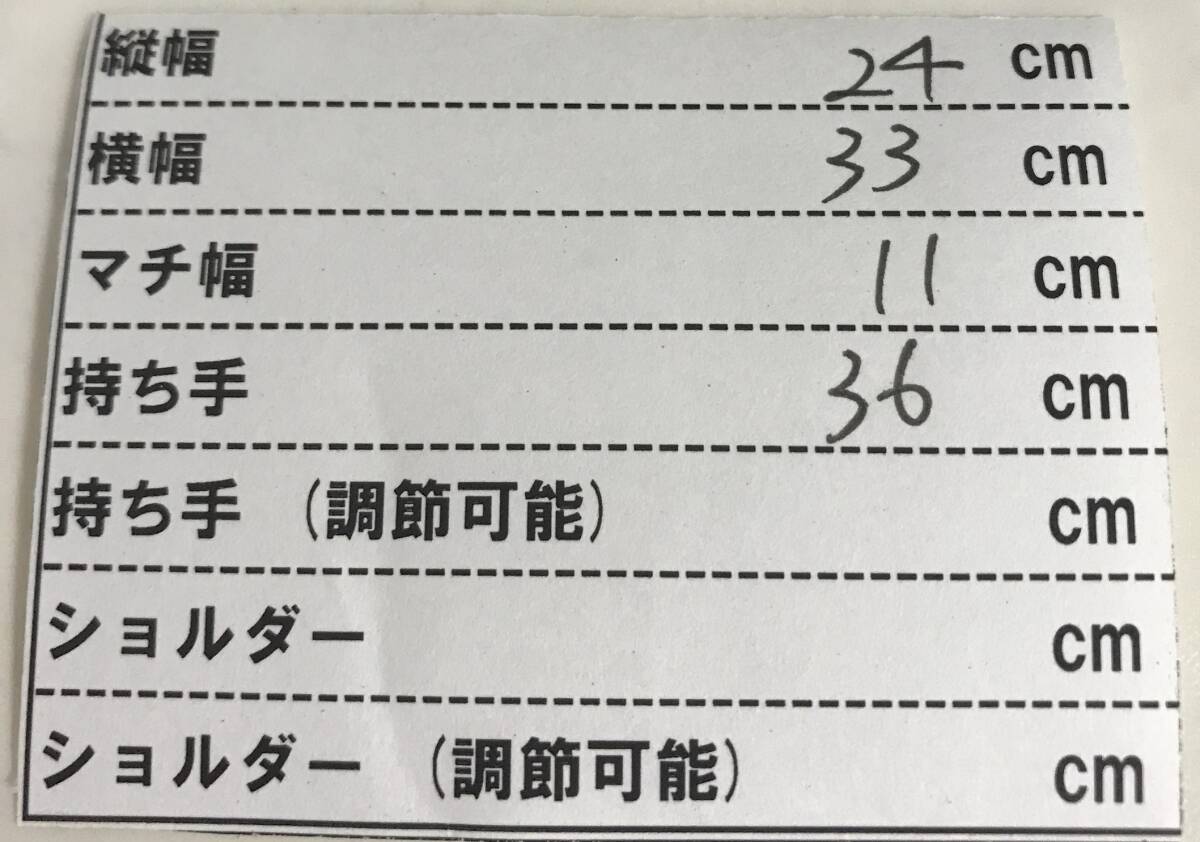 縦幅 24 cm
横幅 33 cm
マチ幅 11 cm
持ち手 36 cm
持ち手 (調節可能) cm
ショルダー cm
ショルダー (調節可能) cm